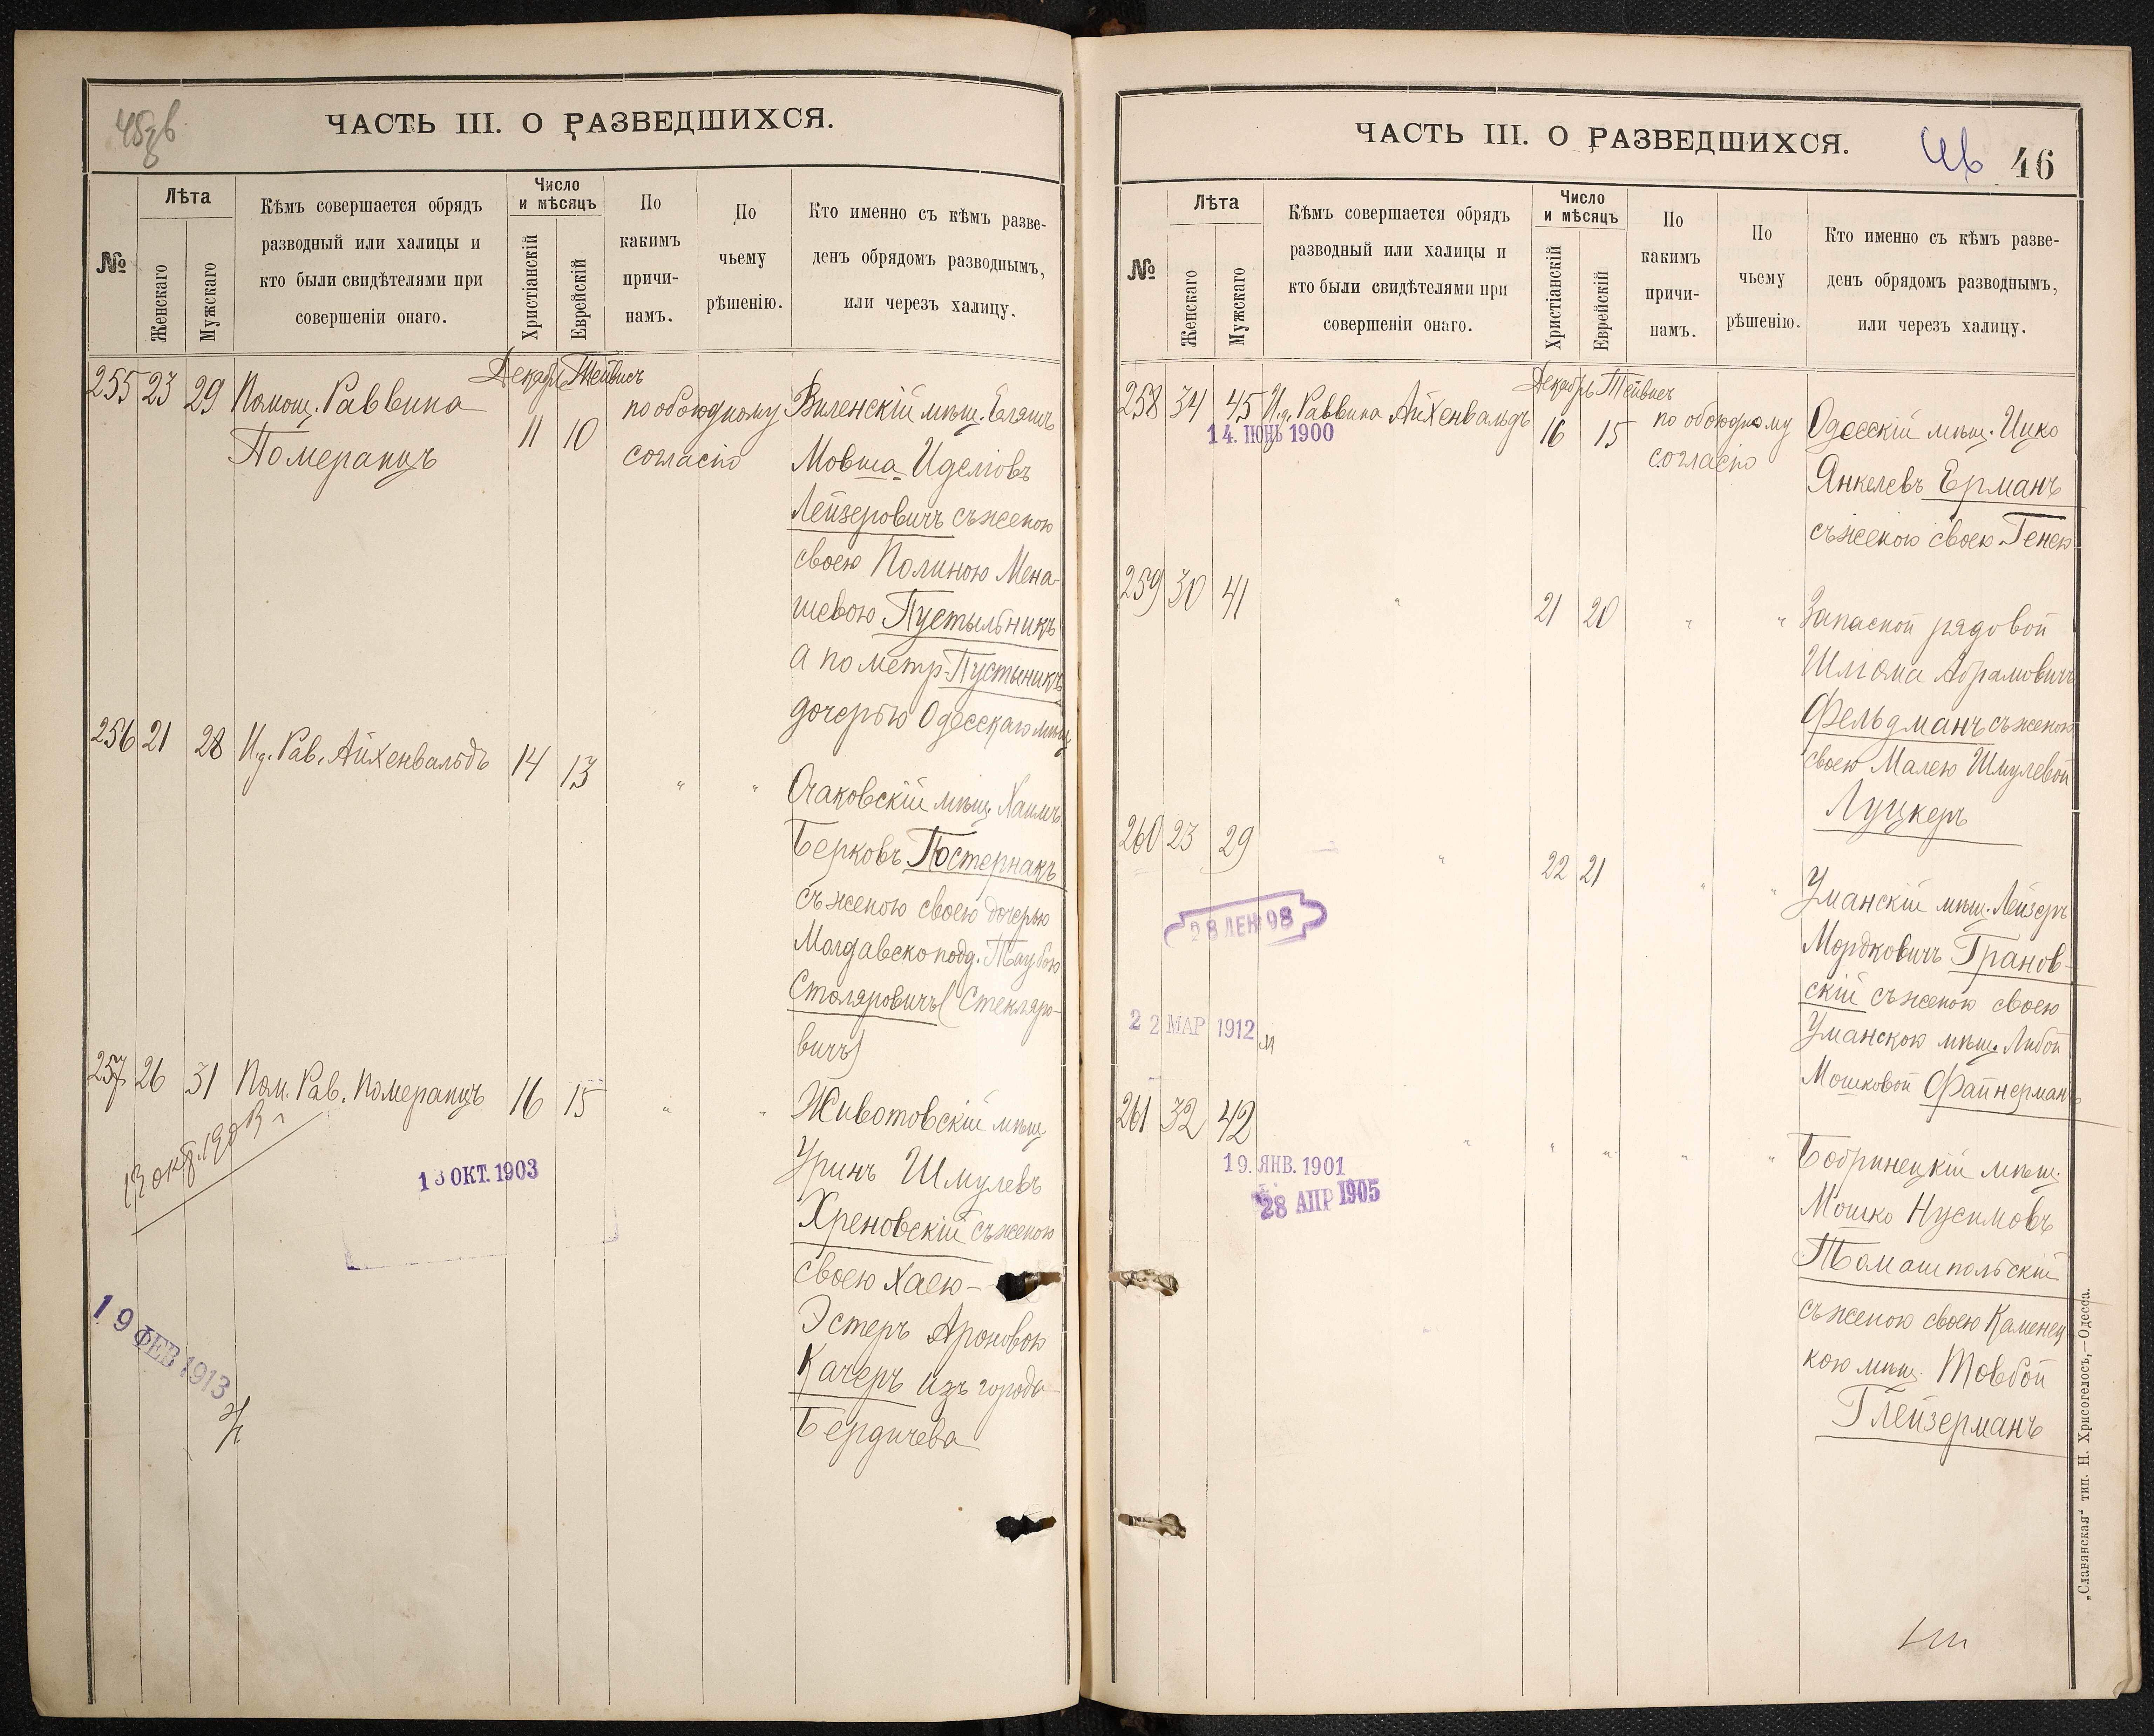 ЧАСТЬ III. О РАЗВЕДШИХСЯ.
№
Лѣта
Женскаго
Мужскаго
Кѣмъ совершается обрядъ
разводный или халицы и
кто были свидѣтелями при
совершеніи онаго.
Число
и мѣсяцъ
Христіанскій
Еврейскій
По
какимъ
причи-
намъ.
По
чьему
рѣшенію.
Кто именно съ кѣмъ разве-
денъ обрядомъ разводнымъ,
или черезъ халицу.
Декабрь Тейвисъ
255 23 29 Помощ. Раввина 11 10 по обоюдному Виленскій мѣщ. Еліашъ
Померанцъ согласію Мовша Иделіовъ
Лейзеровичъ съ женою
своею Полиною Мена-
шевою Пустыльникъ
а по метр. Пустыникъ
дочерью Одесскаго мѣщ.
256 21 28 И.д. Рав. Айхенвальдъ 14 13 " " Очаковскій мѣщ. Хаимъ
Берковъ Постернакъ
съ женою своею дочерью
Молдавско подд. Таубою
Столяровичъ (Стекляро-
вичъ)
257 26 31 Пом. Рав. Померанцъ 16 15 " " Животовскій мѣщ.
Уринъ Шмулевъ
Хреновскій съ женою
своею Хаею-
Эстеръ Ароновою
Качеръ изъ города
Бердичева
13 окт. 1903 г
13 ОКТ. 1903
19 ФЕВ 1913
ЧАСТЬ III. О РАЗВЕДШИХСЯ.
46
№
Лѣта
Женскаго
Мужскаго
Кѣмъ совершается обрядъ
разводный или халицы и
кто были свидѣтелями при
совершеніи онаго.
Число
и мѣсяцъ
Христіанскій
Еврейскій
По
какимъ
причи-
намъ.
По
чьему
рѣшенію.
Кто именно съ кѣмъ разве-
денъ обрядомъ разводнымъ,
или черезъ халицу.
Декабрь Тейвисъ
258 34 45 И.д. Раввина Айхенвальдъ 16 15 по обоюдному Одесскій мѣщ. Ицко
14. ІЮНЬ 1900
согласію Янкелевъ Ерманъ
съ женою своею Генею
259 30 41 " 21 20 " " Запасной рядовой
Шліома Абрамовичъ
Фельдманъ съ женою
своею Малею Шмулевой
Луцкеръ
260 23 29 " 22 21 " " Уманскій мѣщ. Лейзеръ
Мордковичъ Гранов-
скій съ женою своею
Уманскою мѣщ. Либой
Мошковой Файнерманъ
28 ДЕК 98
22 МАР 1912
261 32 42 " " " " " Бобринецкій мѣщ.
19. ЯНВ. 1901
28 АПР 1905
Мошко Нусимовъ
Томашпольскій
съ женою своею Каменец-
кою мѣщ. Товбой
Глейзерманъ
„Славянская" тип. Н. Хрисогелосъ,—Одесса.